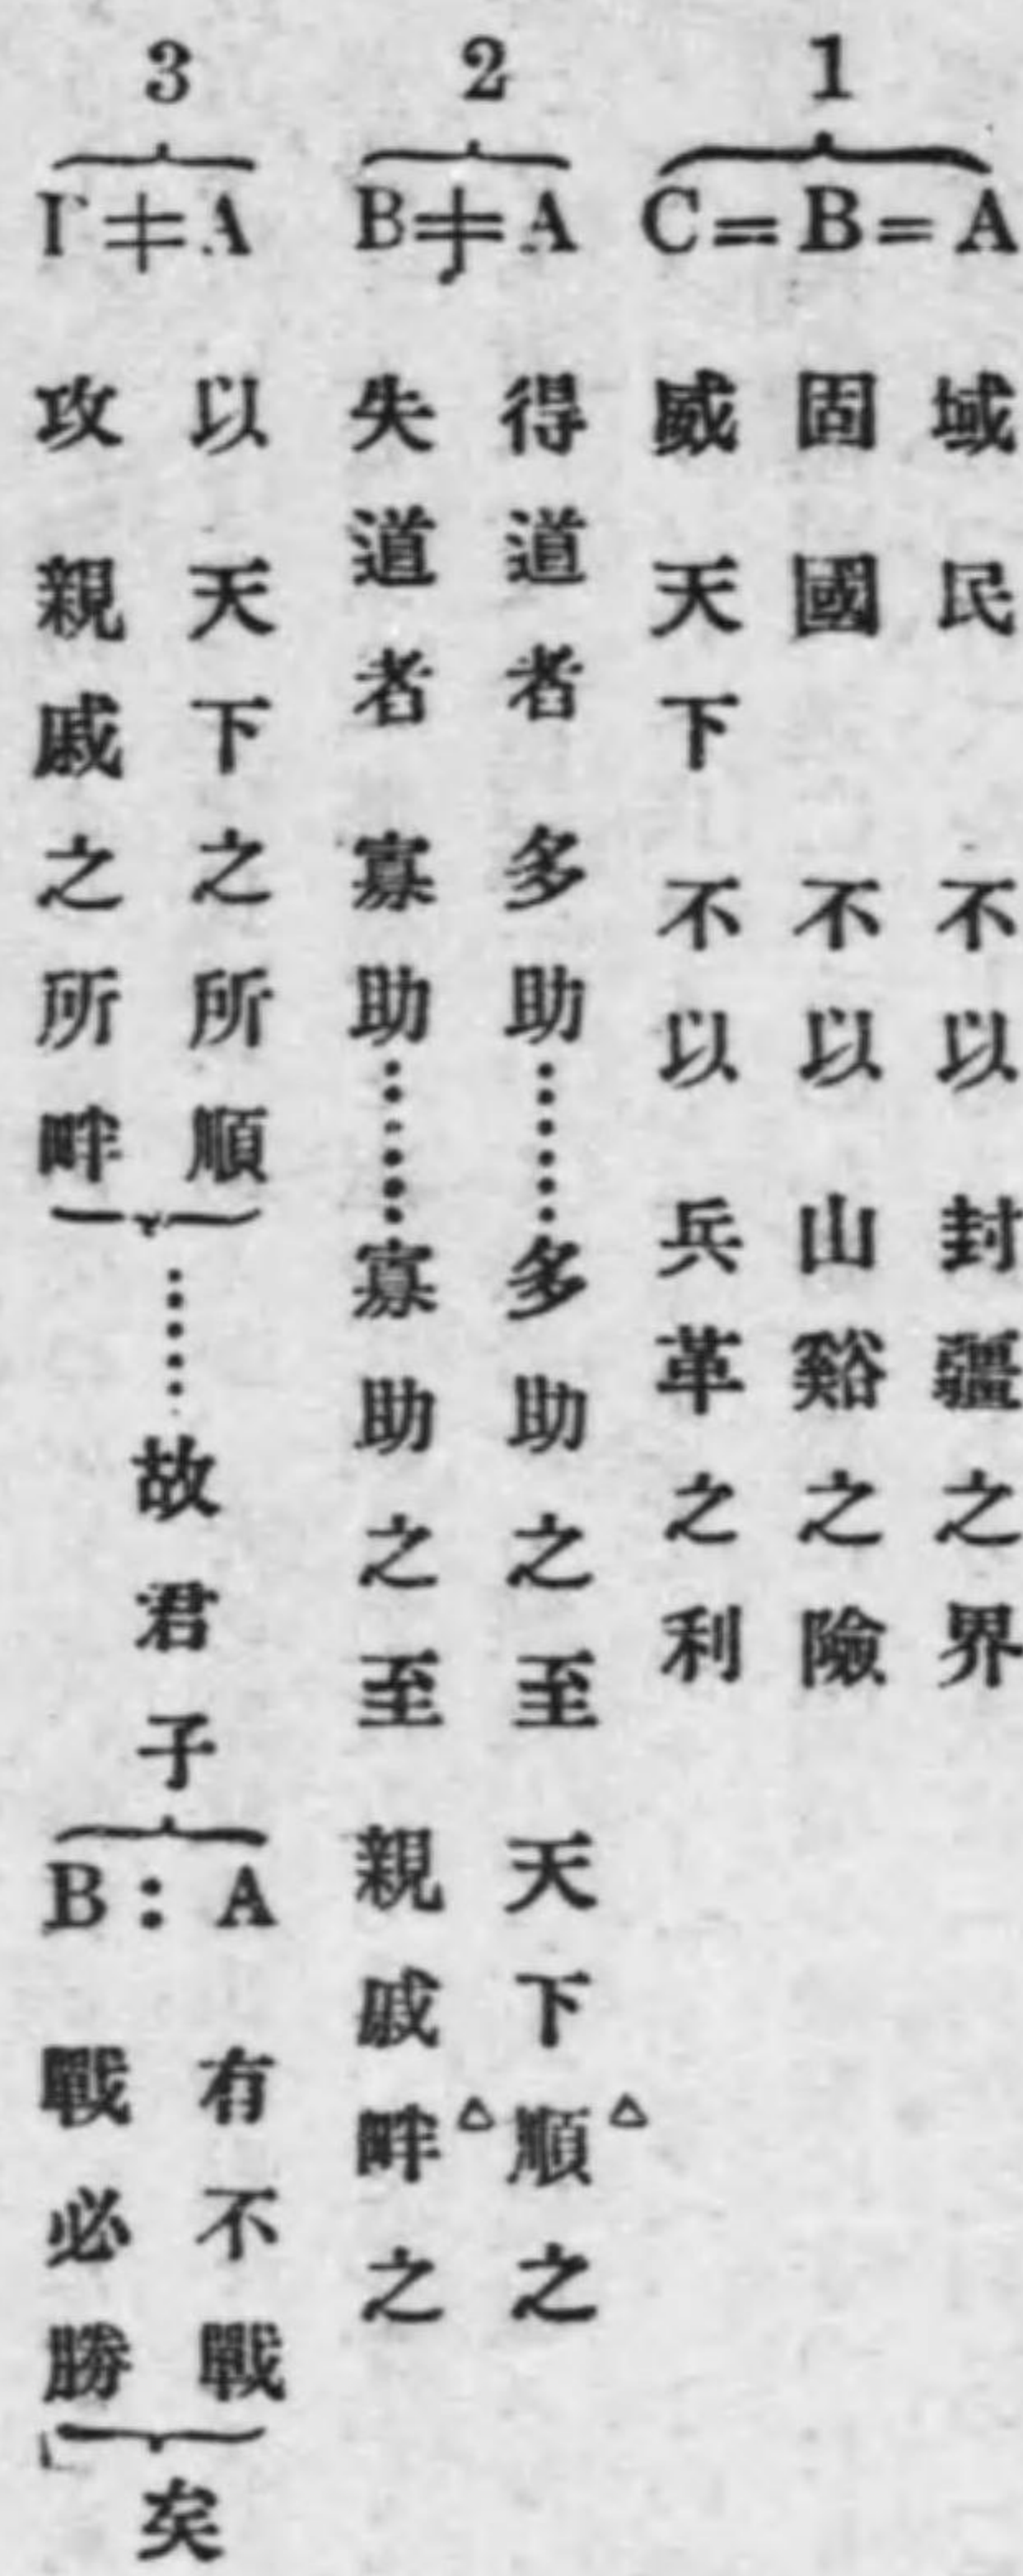 1
C=B=A
域民 不以 封疆之界
固國 不以 山谿之險
威天下 不以 兵革之利
2
B≠A
得道者 多助……多助之至 天下順之
失道者 寡助……寡助之至 親戚畔之
△
△
3
≠A
以 天下之所順
攻 親戚之所畔
……故君子
B:A
有不戰
戰必勝
矣